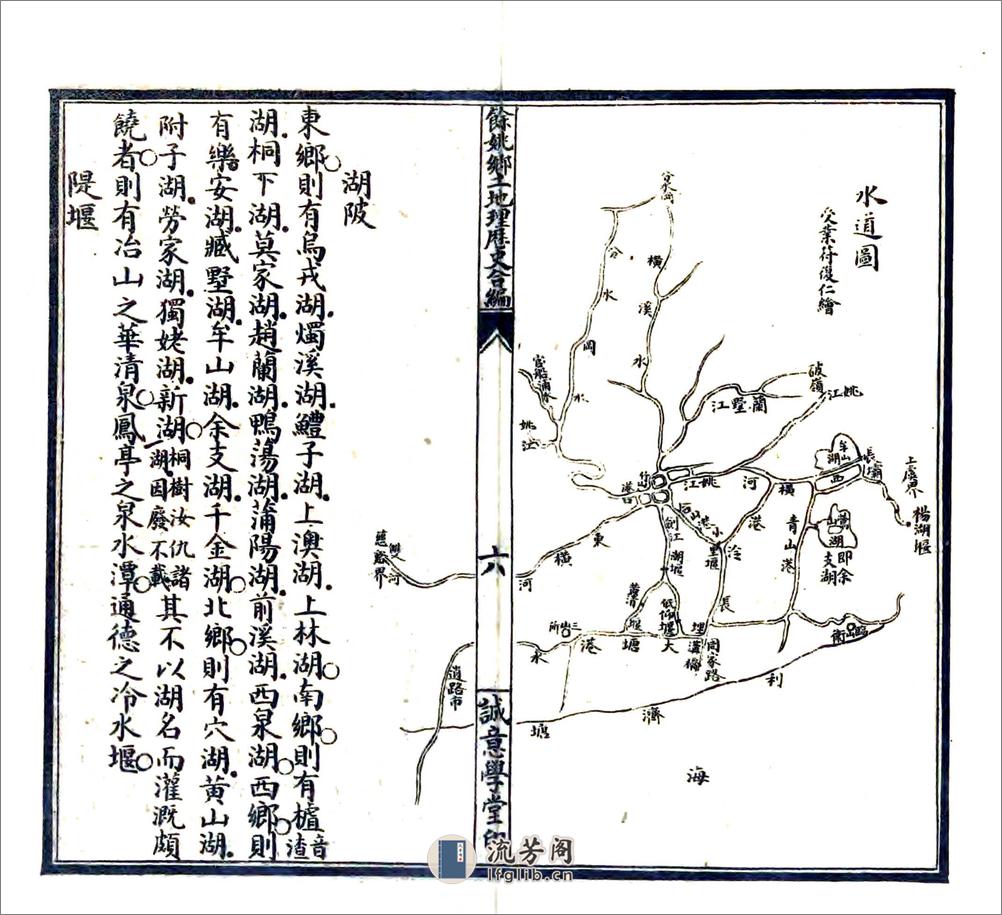 水道圖
受業符復仁繪
分水岡
分水岡水
橫溪水
破嶺
姚江
蘭墅江
姚江
牟山湖
西橫河
長壩
上虞界
楊湖堰
即余支湖
青山港
長泠港
小里堰
劍江
湖堰
低仰堰
大塘港
周家路
臨山衛
三山所
東橫河
慈谿界
永
利濟塘
海
道路市
餘姚鄉土地理歷史合編
十六
誠意學堂印
湖陂
東鄉則有烏戎湖燭溪湖鱧子湖上澳湖上林湖南鄉則有樝音渣
湖桐下湖莫家湖趙蘭湖鴨蕩湖蒲陽湖前溪湖西泉湖西鄉則
有樂安湖臧墅湖牟山湖余支湖千金湖北鄉則有穴湖黃山湖
附子湖勞家湖獨姥湖新湖桐樹汝仇諸湖因廢不載其不以湖名而灌溉頗
饒者則有冶山之華清泉鳳亭之泉水潭通德之冷水堰
隄堰
流芳阁
lfglib.cn